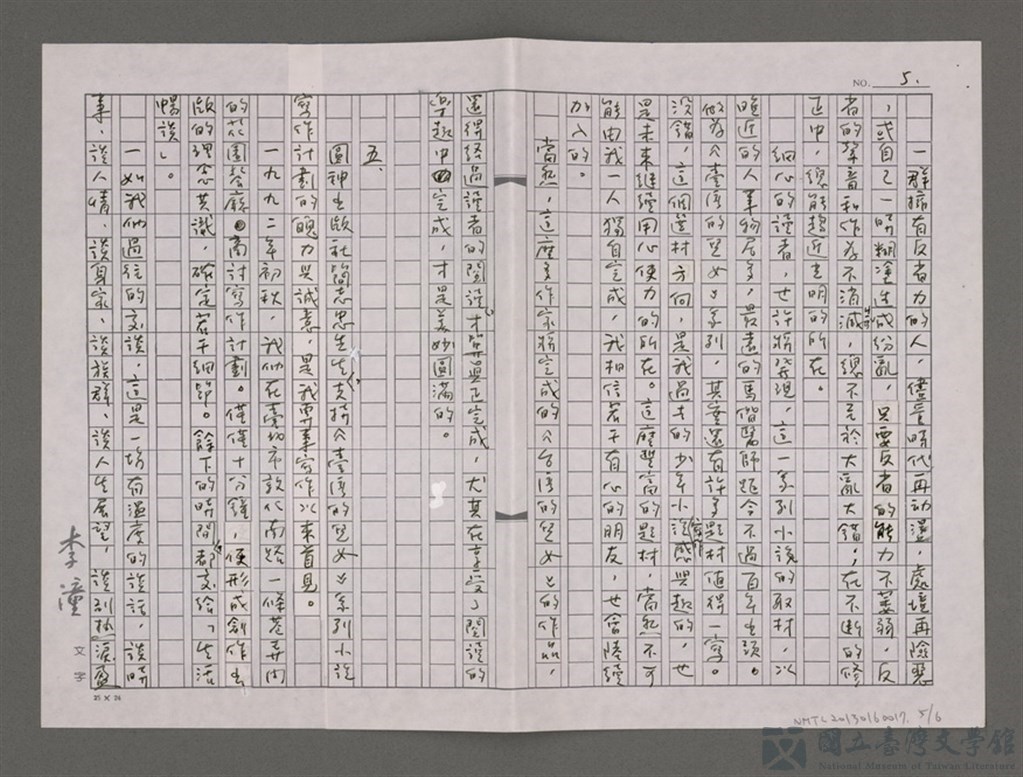 NO. 5.
一群擁有反省力的人，儘管時代再動盪，處境再險惡
，或自己一時糊塗造成紛亂，只要反省的能力不萎弱，反
者的聲音和作為不消滅，總不至於大亂大錯；在不斷的修
正中，總能趨近光明的所在。
細心的讀者，也許將發現，這一系列小說的取材，以
晚近的人事物居多，最遠的馬偕醫師距今不過百年出頭。
做為《臺灣的兒女》系列，其實還有許多題材值得一寫。
沒錯，這個選材方向，是我過去的少年小說寫作感興趣的，也
是未來繼續用心使力的所在。這麼豐富的題材，當然不可
能由我一人獨自完成，我相信若干有心的朋友，也會陸續
加入的。
當然，這麼多作家將完成的《台灣的兒女》的作品，
還得經過讀者的閱讀才算真正完成，尤其在享受了閱讀的
樂趣中完成，才是美妙圓滿的。
五、
圓神出版社簡志忠先生支持《臺灣的兒女》系列小說
寫作計劃的魄力與誠意，是我專事寫作以來首見。
一九九二年初秋，我們在臺北市敦化南路一條巷弄內
的花園餐廳商討寫作計劃。僅僅十分鐘，便形成創作出
版的理念共識，確定若干細節。餘下的時間都交給「生活
暢談」。
一如我們過往的交談，這是一場有溫度的談話，談時
事、談人情、談身家、談族群、談人生展望，談到熱淚盈
李潼
文字
25 × 24
NMTL20130160017. 5/6
國立臺灣文學館
National Museum of Taiwan Literature